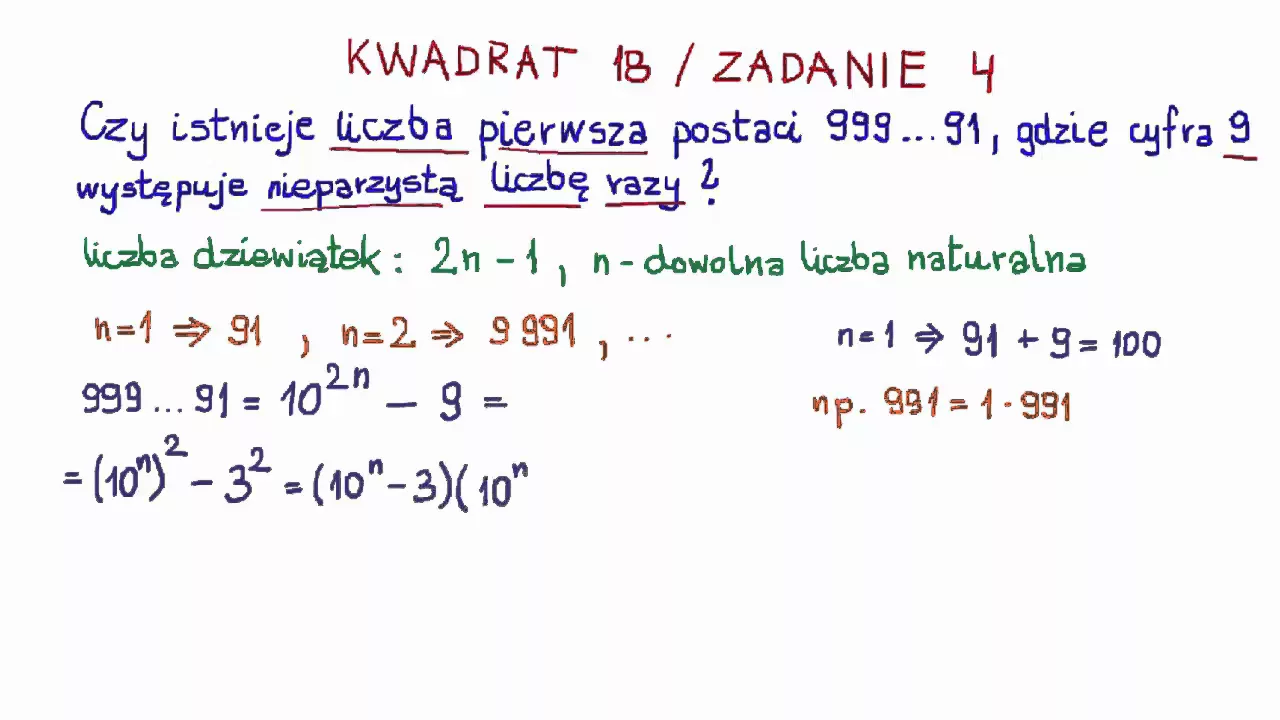 KWADRAT 18 / ZADANIE 4
Czy istnieje liczba pierwsza postaci 999...91, gdzie cyfra 9
występuje nieparzystą liczbę razy?
liczba dziewiątek: 2n-1, n-dowolna liczba naturalna
n=1 ⇒ 91 , n=2 ⇒ 9991 , ...
n=1 ⇒ 91 + 9 = 100
999...91 = 10^{2n} - 9 =
np. 991 = 1·991
= (10^n)^2 - 3^2 = (10^n - 3)(10^n